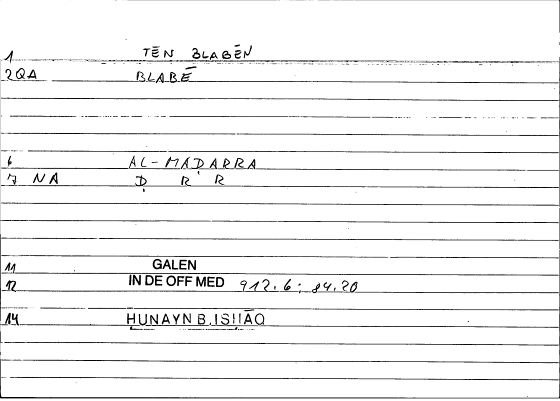 1 TĒN BLABĒN
2 QA BLABĒ
6 AL-MAḌARRA
7 NA Ḍ R R
11 GALEN
12 IN DE OFF MED 912.6; 84.20
14 HUNAYN B. ISḤĀQ